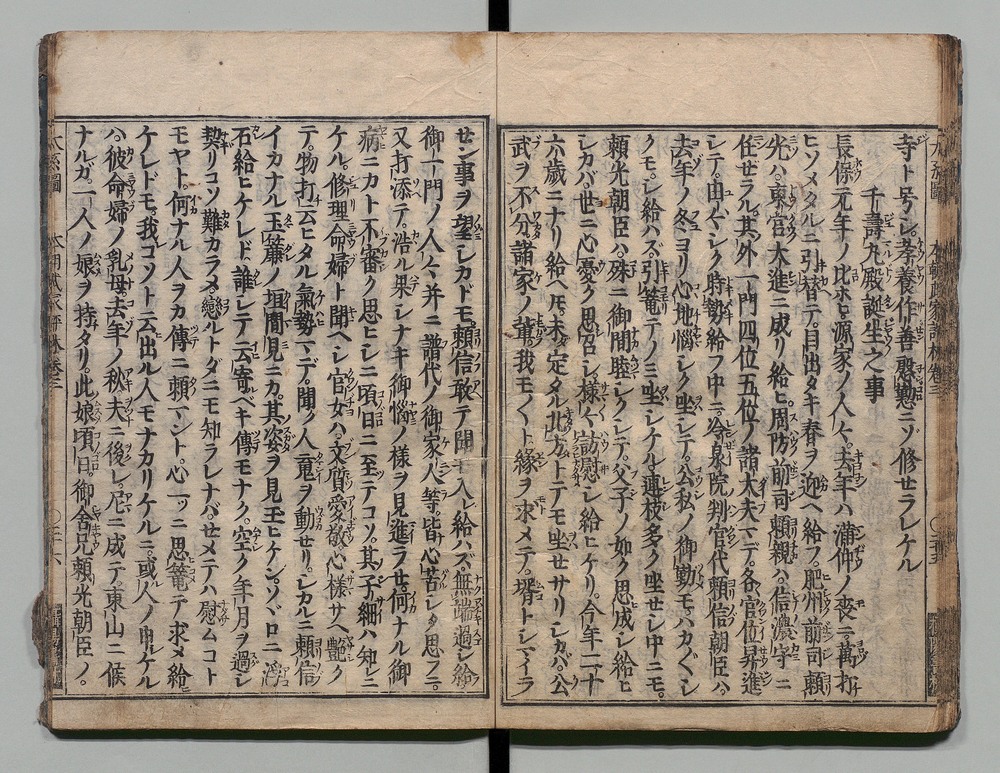 寺ト号シ。孝養作善慇懃ニゾ修セラレケル
千壽丸殿誕生之事
長保元年ノ比ホヒ源家ノ人々。去年ハ滿仲ノ喪ニ萬打
ヒソメタルニ引替テ。目出タキ春ヲ迎ヘ給フ。肥州前司頼
光ハ。東宮大進ニ成リ給ヒ。周防前司頼親ハ。信濃守ニ
任セラル。其外一門四位五位ノ諸大夫マデ。各官位昇進
シテ。由々シク時勢給フ中ニ。冷泉院判官代頼信朝臣ハ
去年ノ冬ヨリ心地惱シク坐シテ。公私ノ御勤モハカ〲シ
クモ。シ給ハズ。引篭テノミ坐シケル。連枝多ク坐セシ中ニモ。
頼光朝臣ハ。殊ニ御間睦シクシテ。父子ノ如ク思成シ給ヒ
シカバ。世ニ心憂ク思召シ。様々訪慰シ給ヒケリ。今年二十
六歳ニナリ給ヘ𪜈。未定タル北方トテモ坐セサリシカバ。公
武ヲ不分。諸家ノ輩我モ〱ト。緣ヲ求メテ。壻トシマイラ
セン事ヲ望シカドモ。頼信敢テ聞モ入レ給ハズ。無端過シ給
御一門ノ人々并ニ譜代ノ御家人等。皆心苦シタ思フニ。
又打添テ。浩ル果シナキ御惱ノ様ヲ見進ラセ。何ナル御
病ニカト不審ク思ヒシニ。頃日ニ至テコソ。其子細ハ知レニ
ケル。修理命婦ト聞ヘシ官女ハ。文質愛敬心様サヘ艶ク
テ。物打云ヒタル氣勢マデ。聞ク人䰟ヲ動セリ。シカルニ頼信
イカナル玉簾ノ垣間見ニカ。其姿ヲ見玉ヒケン。ソゞロニ浮
石給ヒケレド。誰シテ云寄ベキ傳モナク。空ク年月ヲ過シ
契リコソ難カラメ。戀ルトダニモ知ラレナバ。セメテハ慰ムコト
モヤト。何ナル人ヲカ傳ニ頼マント。心一ツニ思篭テ求メ給
ケレドモ。我コソト云出ル人モナカリケルニ。或人ノ申ケル
ハ。彼命婦ノ乳母去年ノ秋夫ニ後レ。尼ニ成テ。東山ニ候
ナルガ。一人ノ娘ヲ持タリ。此娘頃日。御舍兄頼光朝臣ノ。